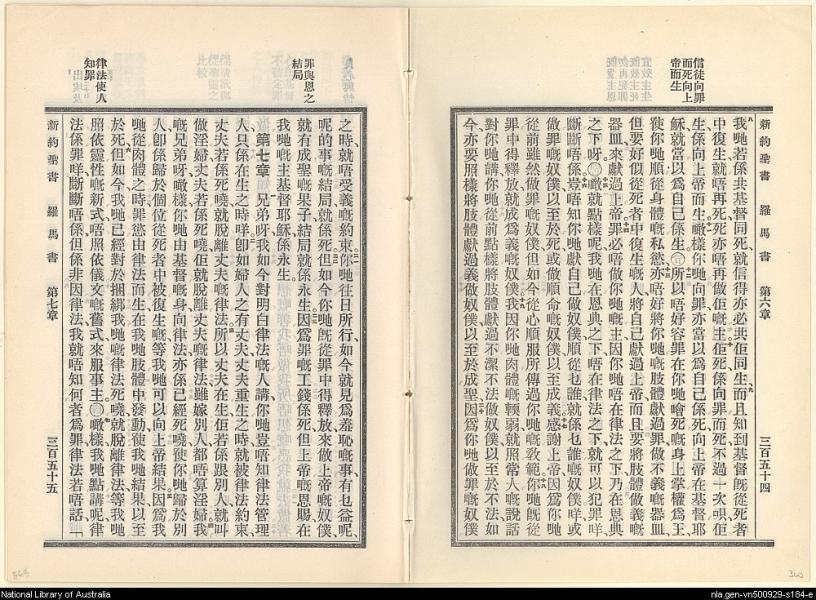 新約聖書 羅馬書 第六章 三百五十四
信徒向罪
而死向上
帝而生
我哋若係共基督同死就信得亦必共佢同生而且知到基督既從死者
中復生就唔再死死亦唔再做佢嘅主佢死係向罪而死不過一次呮佢
生係向上帝而生噉樣你哋向罪亦當以爲自己係死向上帝在基督耶
穌就當以爲自己係生所以唔好容罪在你哋會死嘅身上掌權爲王
使你哋順從身體嘅私慾亦唔好將你哋嘅肢體獻過罪做不義嘅器皿
但要好似從死者中復生嘅人將自己獻過上帝而且要將肢體做義嘅
器皿來獻過上帝罪必唔做你哋嘅主因你哋唔在律法之下乃在恩典
之下呀噉就點樣呢我哋在恩典之下唔在律法之下就可以犯罪咩
斷斷唔係豈唔知你哋獻自己做奴僕順從乜誰就係乜誰嘅奴僕咩或
做罪嘅奴僕以至於死或做順命嘅奴僕以至成義感謝上帝因爲你哋
從前雖然做罪嘅奴僕但如今從心順服所傳過你哋嘅教範你哋既從
罪中得釋放就成爲義嘅奴僕我因你哋肉體嘅輭弱就照常人嘅說話
對你哋講你哋從前點樣將肢體獻過不潔不法做奴僕以至於不法如
今亦要照樣將肢體獻過義做奴僕以至於成聖因爲你哋做罪嘅奴僕
罪與恩之
結局
律法使人
知罪
之時就唔受義嘅約束你哋往日所行如今就見爲羞恥嘅事有乜益呢
呢的事嘅結局就係死但如今你哋既從罪中得釋放來做上帝嘅奴僕
就有成聖嘅果子結局就係永生因爲罪嘅工錢係死但上帝嘅恩賜在
我哋嘅主基督耶穌係永生
第七章 兄弟呀我如今對明白律法嘅人講你哋豈唔知律法管理
人只係在生之時咩卽如婦人之有丈夫丈夫重生之時就被律法約束
丈夫若係死嘵就脫離丈夫嘅律法所以丈夫在生佢若係跟別人就叫
做淫婦丈夫若係死嘵佢就脫離丈夫嘅律法雖嫁別人都唔算淫婦我
嘅兄弟呀噉樣你哋由基督嘅身向律法亦係已經死嘵使你哋歸於別
人卽係歸於個位從死者中被復生嘅等我哋可以向上帝結果因爲我
哋從肉體之時罪慾由律法而生在我哋肢體中發動使我哋結果以至
於死但如今我哋已經對於捆綁我哋嘅律法死嘵就脫離律法等我哋
照依靈性嘅新式唔照依儀文嘅舊式來服事主噉樣我哋點講呢律
法係罪咩斷斷唔係但係非因律法我就唔知何者爲罪律法若唔話「
新約聖書 羅馬書 第七章 三百五十五
National Library of Australia
nla.gen-vn500929-s184-e